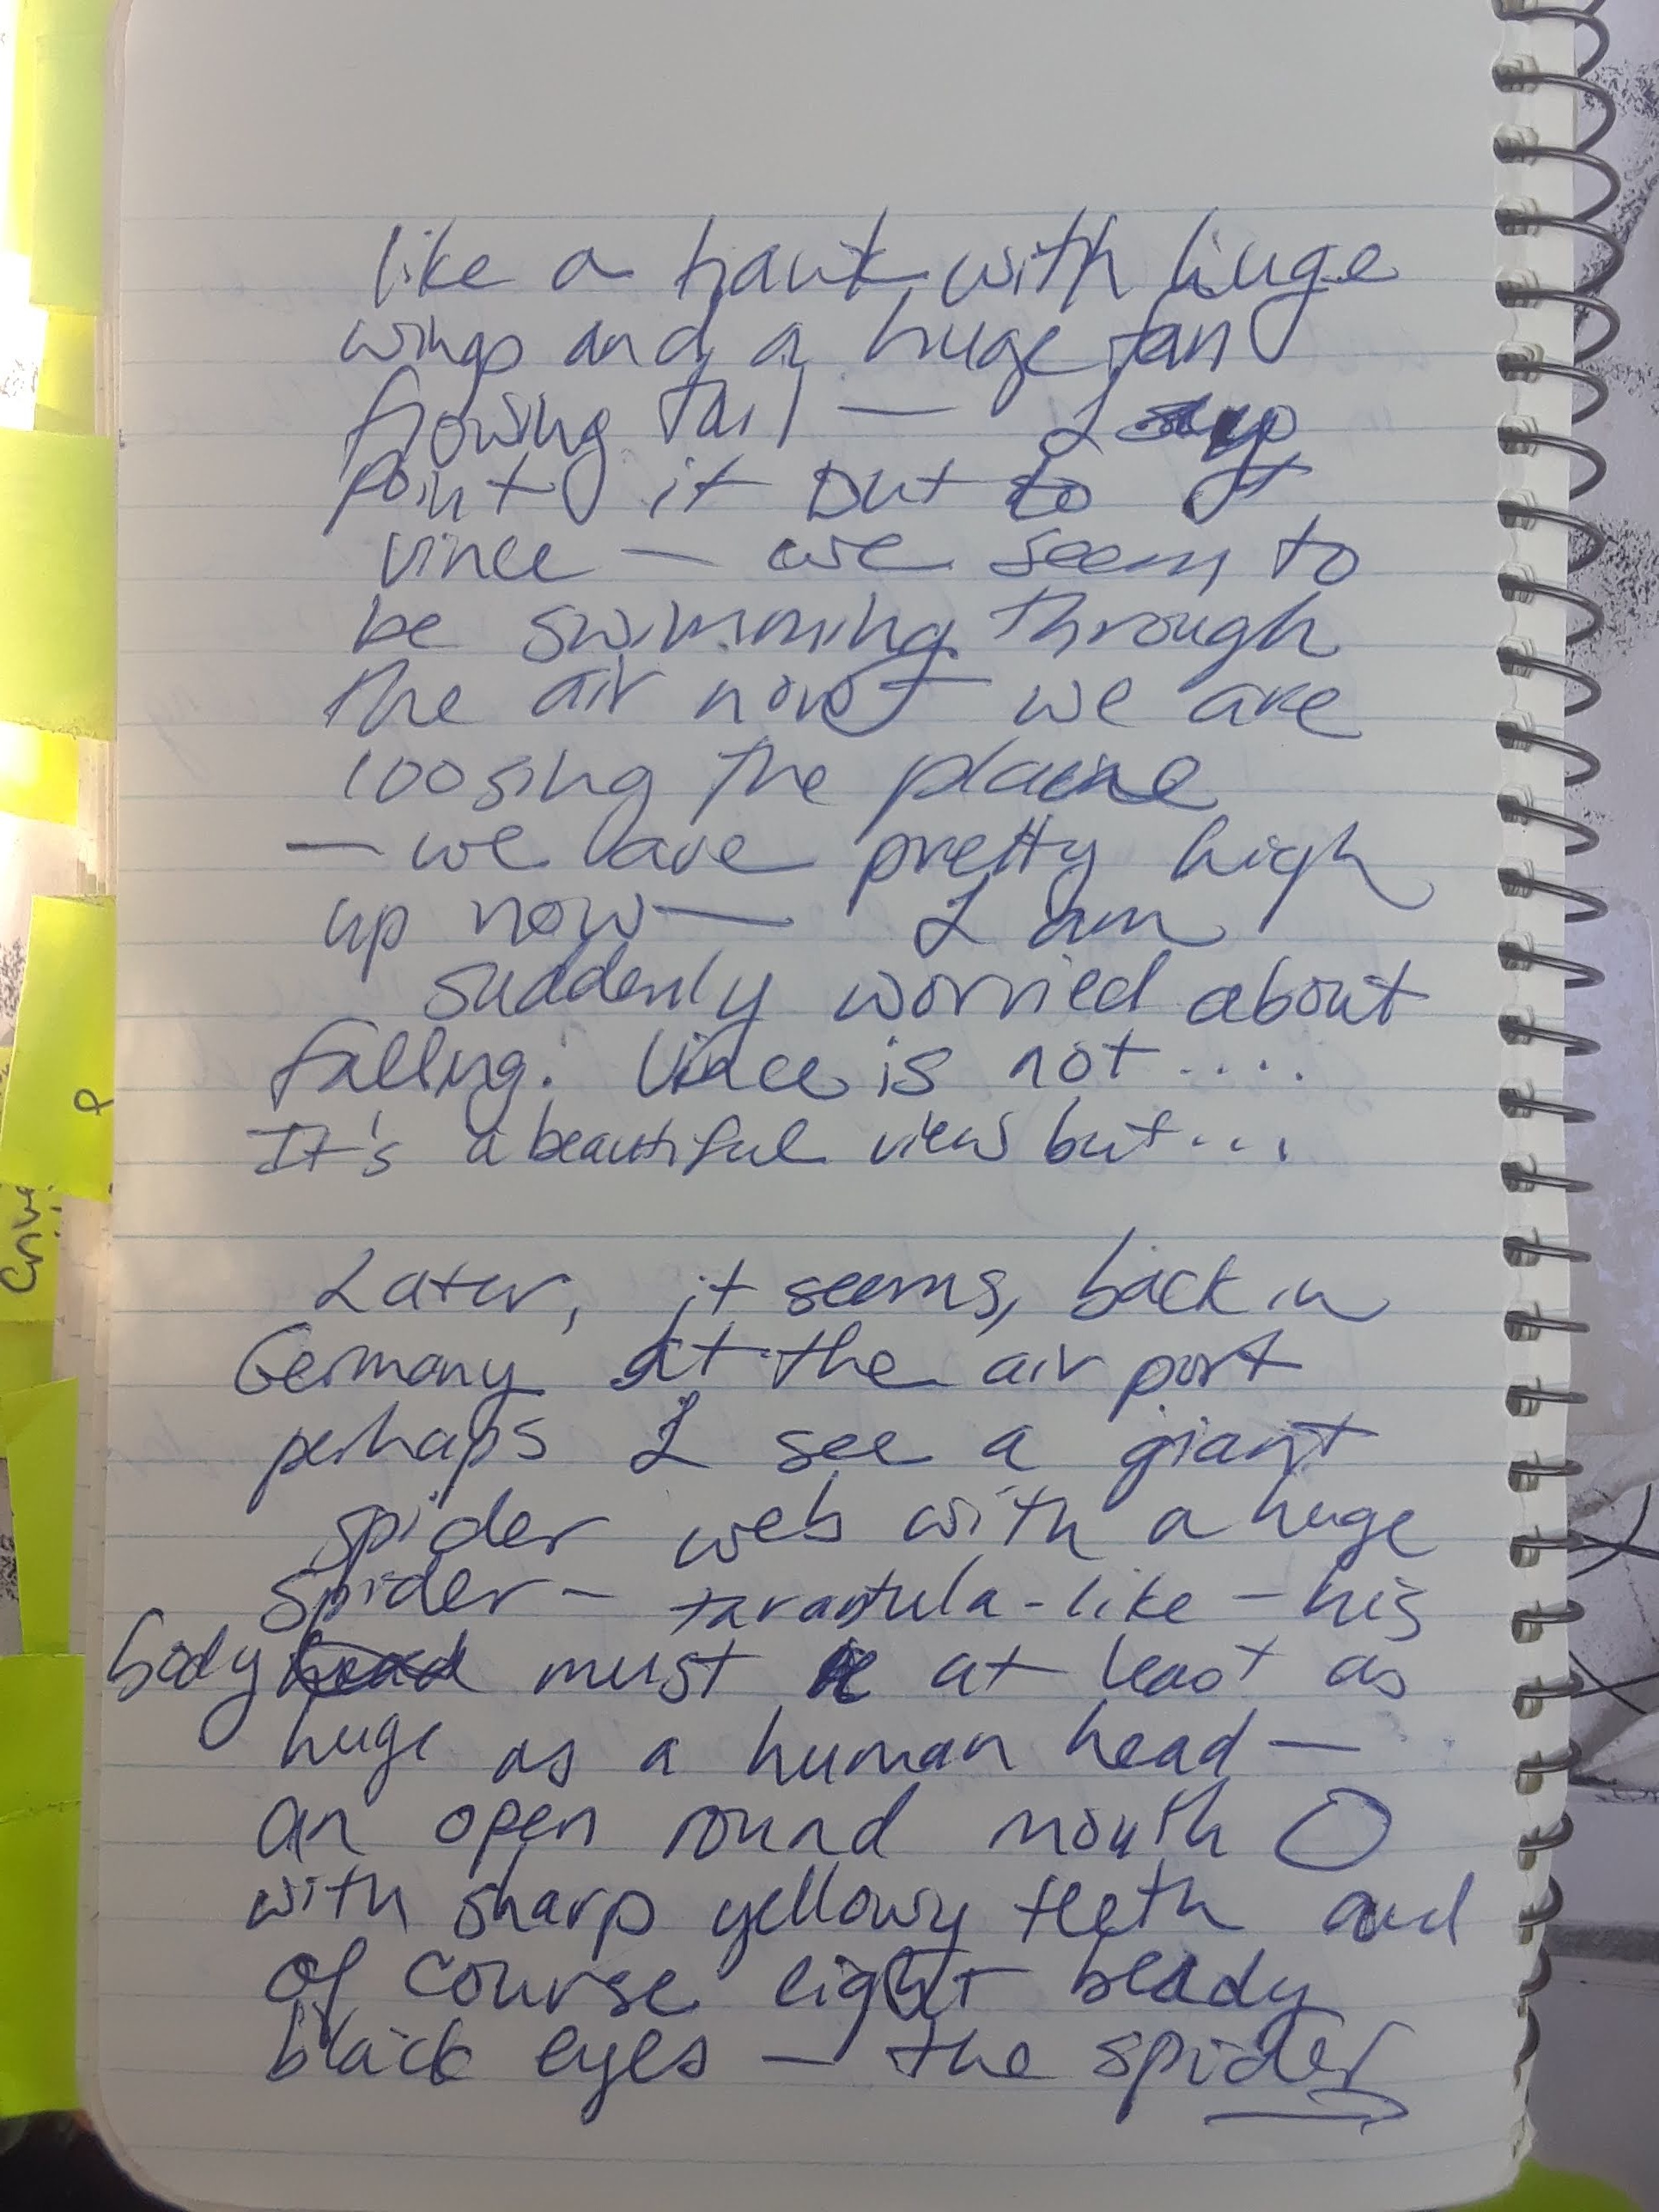 like a hawk with huge
wings and a huge fan
flowing tail — I
point it out to
Vince — we seem to
be swimming through
the air now — we are
loosing the plane
— we are pretty high
up now — I am
suddenly worried about
falling. Vince is not....
It's a beautiful view but...
Later, it seems, back in
Germany at the air port
perhaps I see a giant
spider web with a huge
spider - tarantula-like - his
body head must be at least as
huge as a human head —
an open round mouth O
with sharp yellowy teeth and
of course eight beady
black eyes — the spider
P